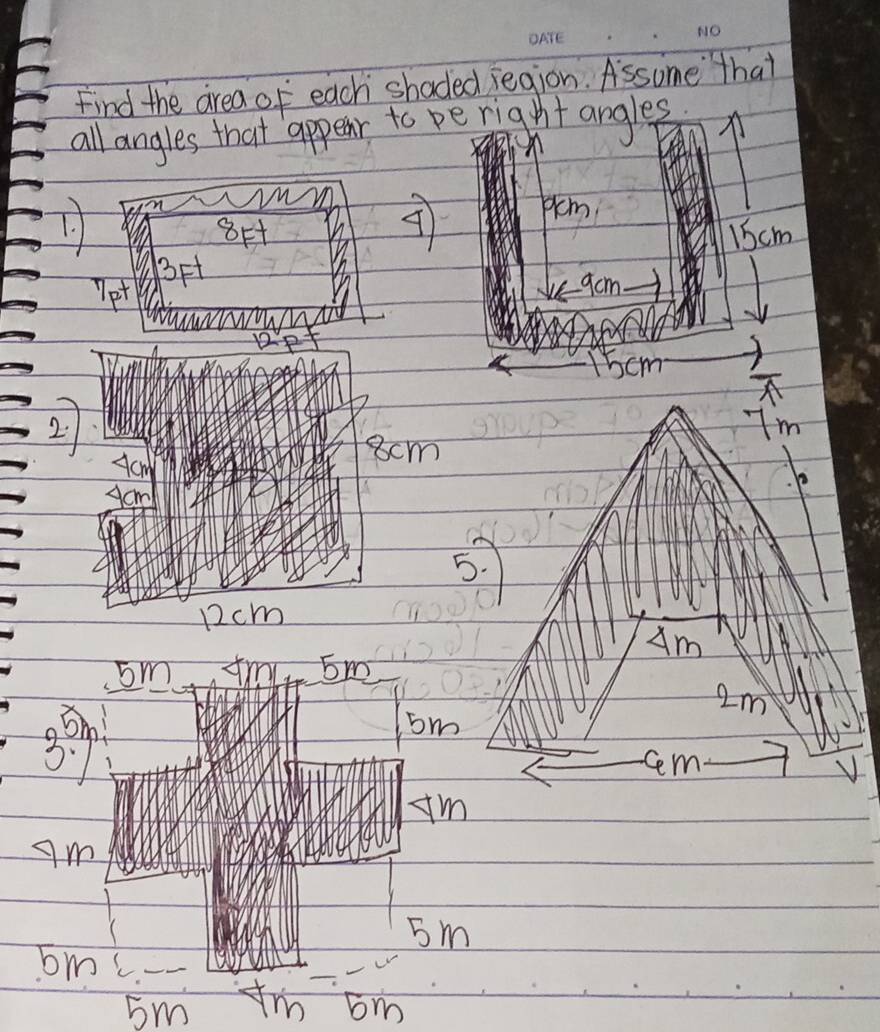 DATE NO
Find the area of each shaded region. Assume that
all angles that appear to be right angles.
1.)
8Ft
3Ft
7pt
12pt
4)
9cm
15cm
9cm
15cm
2.)
8cm
4cm
4cm
12cm
7m
5.)
4m
2m
6m
5m 4m 5m
3.)
5m
5m
4m
4m
5m
5m
5m 4m 5m